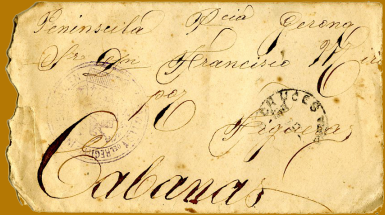 Península Pcia Gerona
Sr. Dn Francisco
por Figueras
CRUCES
Cabanas